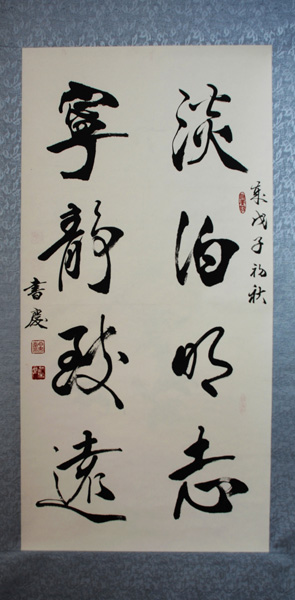 淡泊明志
歲戊子初秋
寧靜致遠
書慶